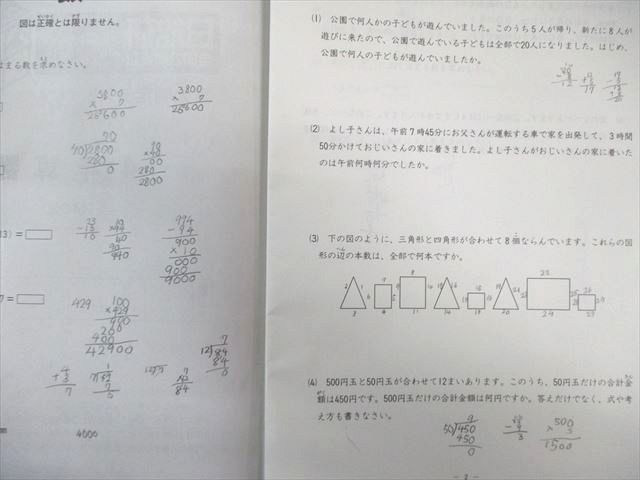 図は正確とは限りません。
はまる数を求めなさい。
3800
× 7
26600
3800
× 7
26600
70
40)2800
280
0
280
2800
13) =
23
- 13
10
994
- 94
900
× 10
000
900
9000
7 =
429
100
× 429
900
200
400
42900
4
+ 3
7
7
12)84
84
0
84
4000
(1) 公園で何人かの子どもが遊んでいました。このうち5人が帰り、新たに8人が
遊びに来たので、公園で遊んでいる子どもは全部で20人になりました。はじめ、
公園で何人の子どもが遊んでいましたか。
12
17
(2) よし子さんは、午前7時45分にお父さんが運転する車で家を出発して、3時間
50分かけておじいさんの家に着きました。よし子さんがおじいさんの家に着いた
のは午前何時何分でしたか。
(3) 下の図のように、三角形と四角形が合わせて8個ならんでいます。これらの図
形の辺の本数は、全部で何本ですか。
(4) 500円玉と50円玉が合わせて12まいあります。このうち、50円玉だけの合計金
額は450円です。500円玉だけの合計金額は何円ですか。答えだけでなく、式や考
え方も書きなさい。
9
50)450
450
0
3
500
× 3
1500